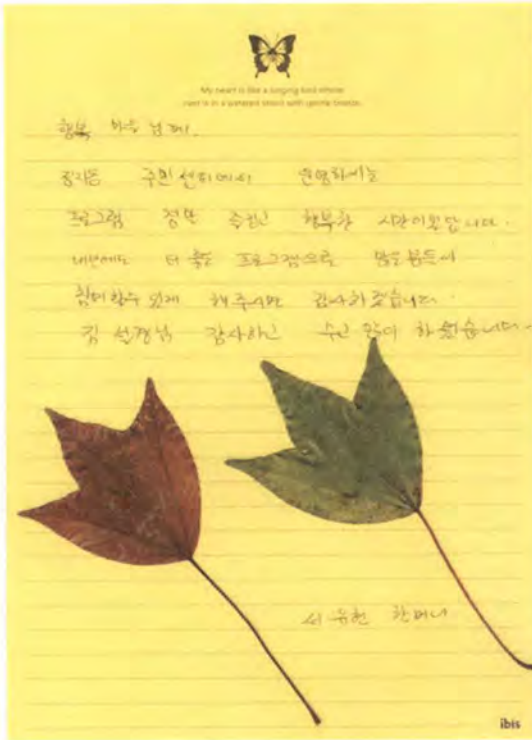 My heart is like a singing bird whose
nest is in a watered shoot with gentle breeze.
행복 마을 님께.
주민센터에서 운영하시는
프로그램 정말 즐겁고 행복한 시간이였답니다.
내년에도 더 좋은 프로그램으로 많은분들이
참여할수 있게 해주시면 감사하겠습니다.
김 선경님 감사하고 수고 많이 하셨습니다.
서 유헌 할머니
ibis